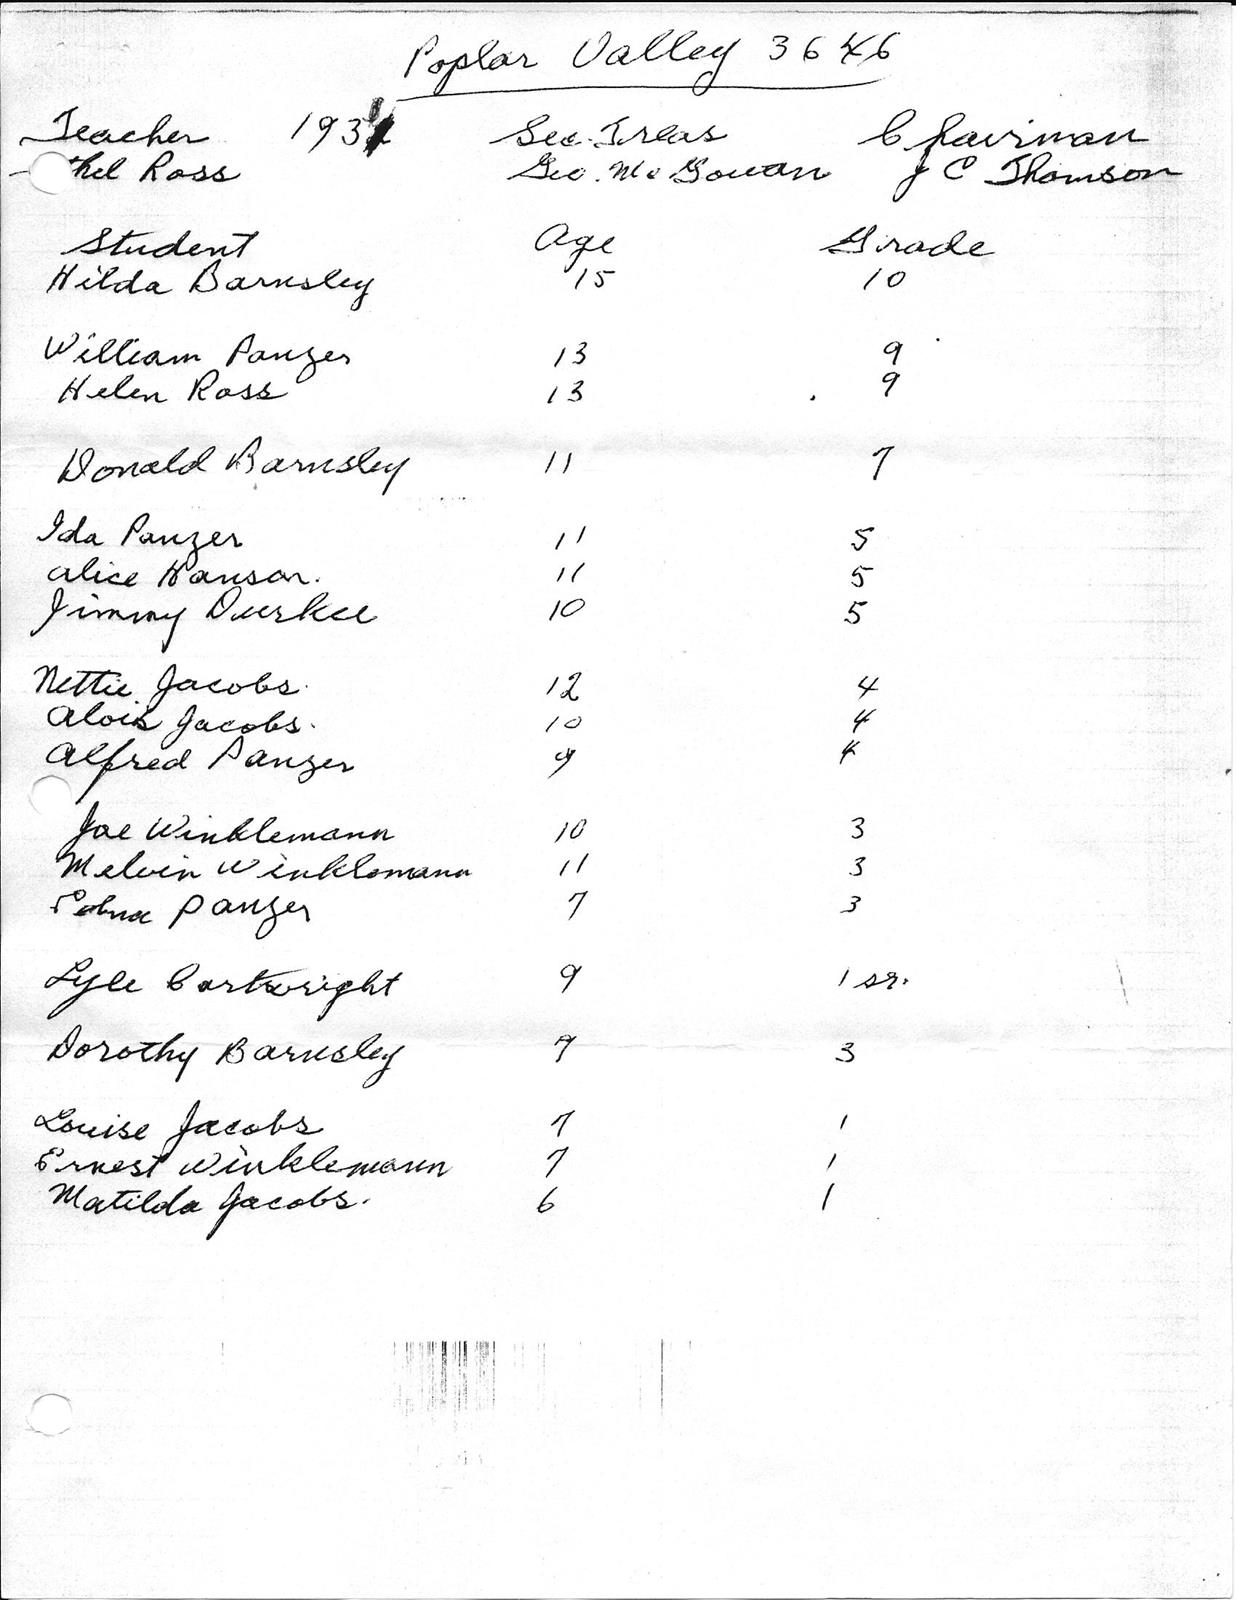 Poplar Valley 3646
Teacher 193 Sec. Treas Chairman
thel Ross Geo. McGowan J C Thomson
Student Age Grade
Hilda Barnsley 15 10
William Panzer 13 9
Helen Ross 13 9
Donald Barnsley 11 7
Ida Panzer 11 5
Alice Hanson. 11 5
Jimmy Durkee 10 5
Nettie Jacobs. 12 4
Alois Jacobs. 10 4
Alfred Panzer 9 4
Joe Winklemann 10 3
Melvin Winklemann 11 3
Edna Panzer 7 3
Lyle Cartwright 9 1 sr.
Dorothy Barnsley 9 3
Louise Jacobs 7 1
Ernest Winklemann 7 1
Matilda Jacobs. 6 1